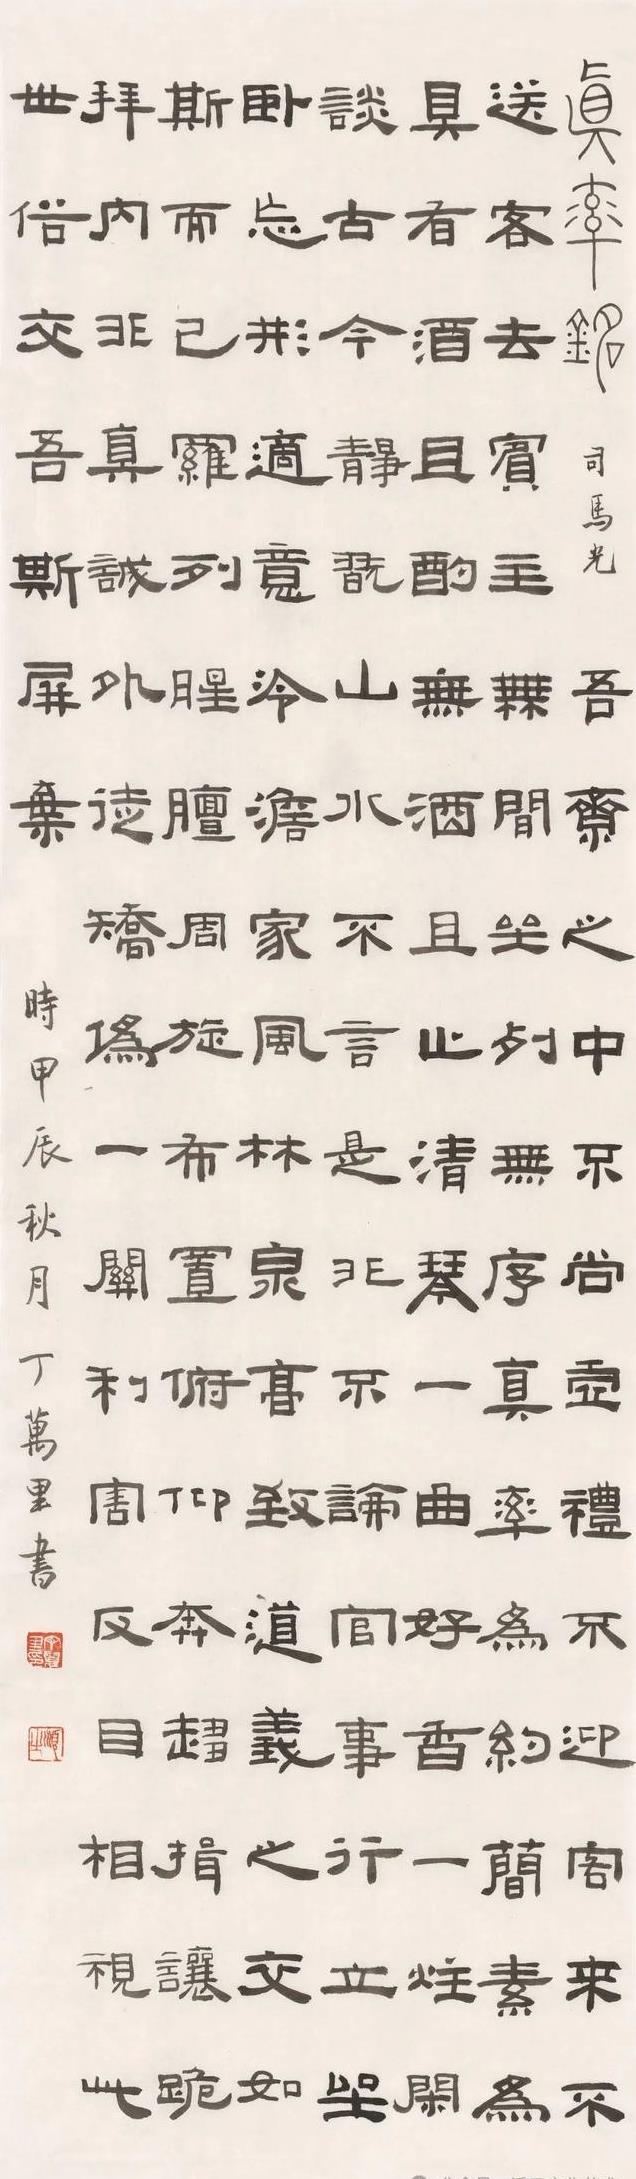 眞率銘 司馬光 吾齋之中不尚虛禮不迎客来不
送客去賓主無間坐列無序真率為約簡素為
具有酒且酌無酒且止清琴一曲好香一炷閑
談古今靜翫山水不言是非不論官事行立坐
卧忘形適意冷澹家風林泉高致道義之交如
斯而已羅列腥膻周旋布置俯仰奔趨揖讓跪
拜內非真誠外徒矯偽一關利害反目相視此
世俗交吾斯屏棄 時甲辰秋月丁萬里書